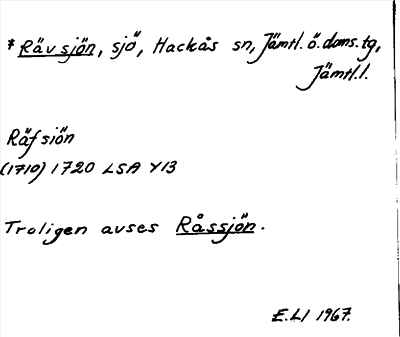 * Rävsjön, sjö, Hackås sn, Jämtl. ö. doms. tg,
Jämtl. l.
Räfsiön
(1710) 1720 LSA Y13
Troligen avses Råssjön.
E.Ll 1967.